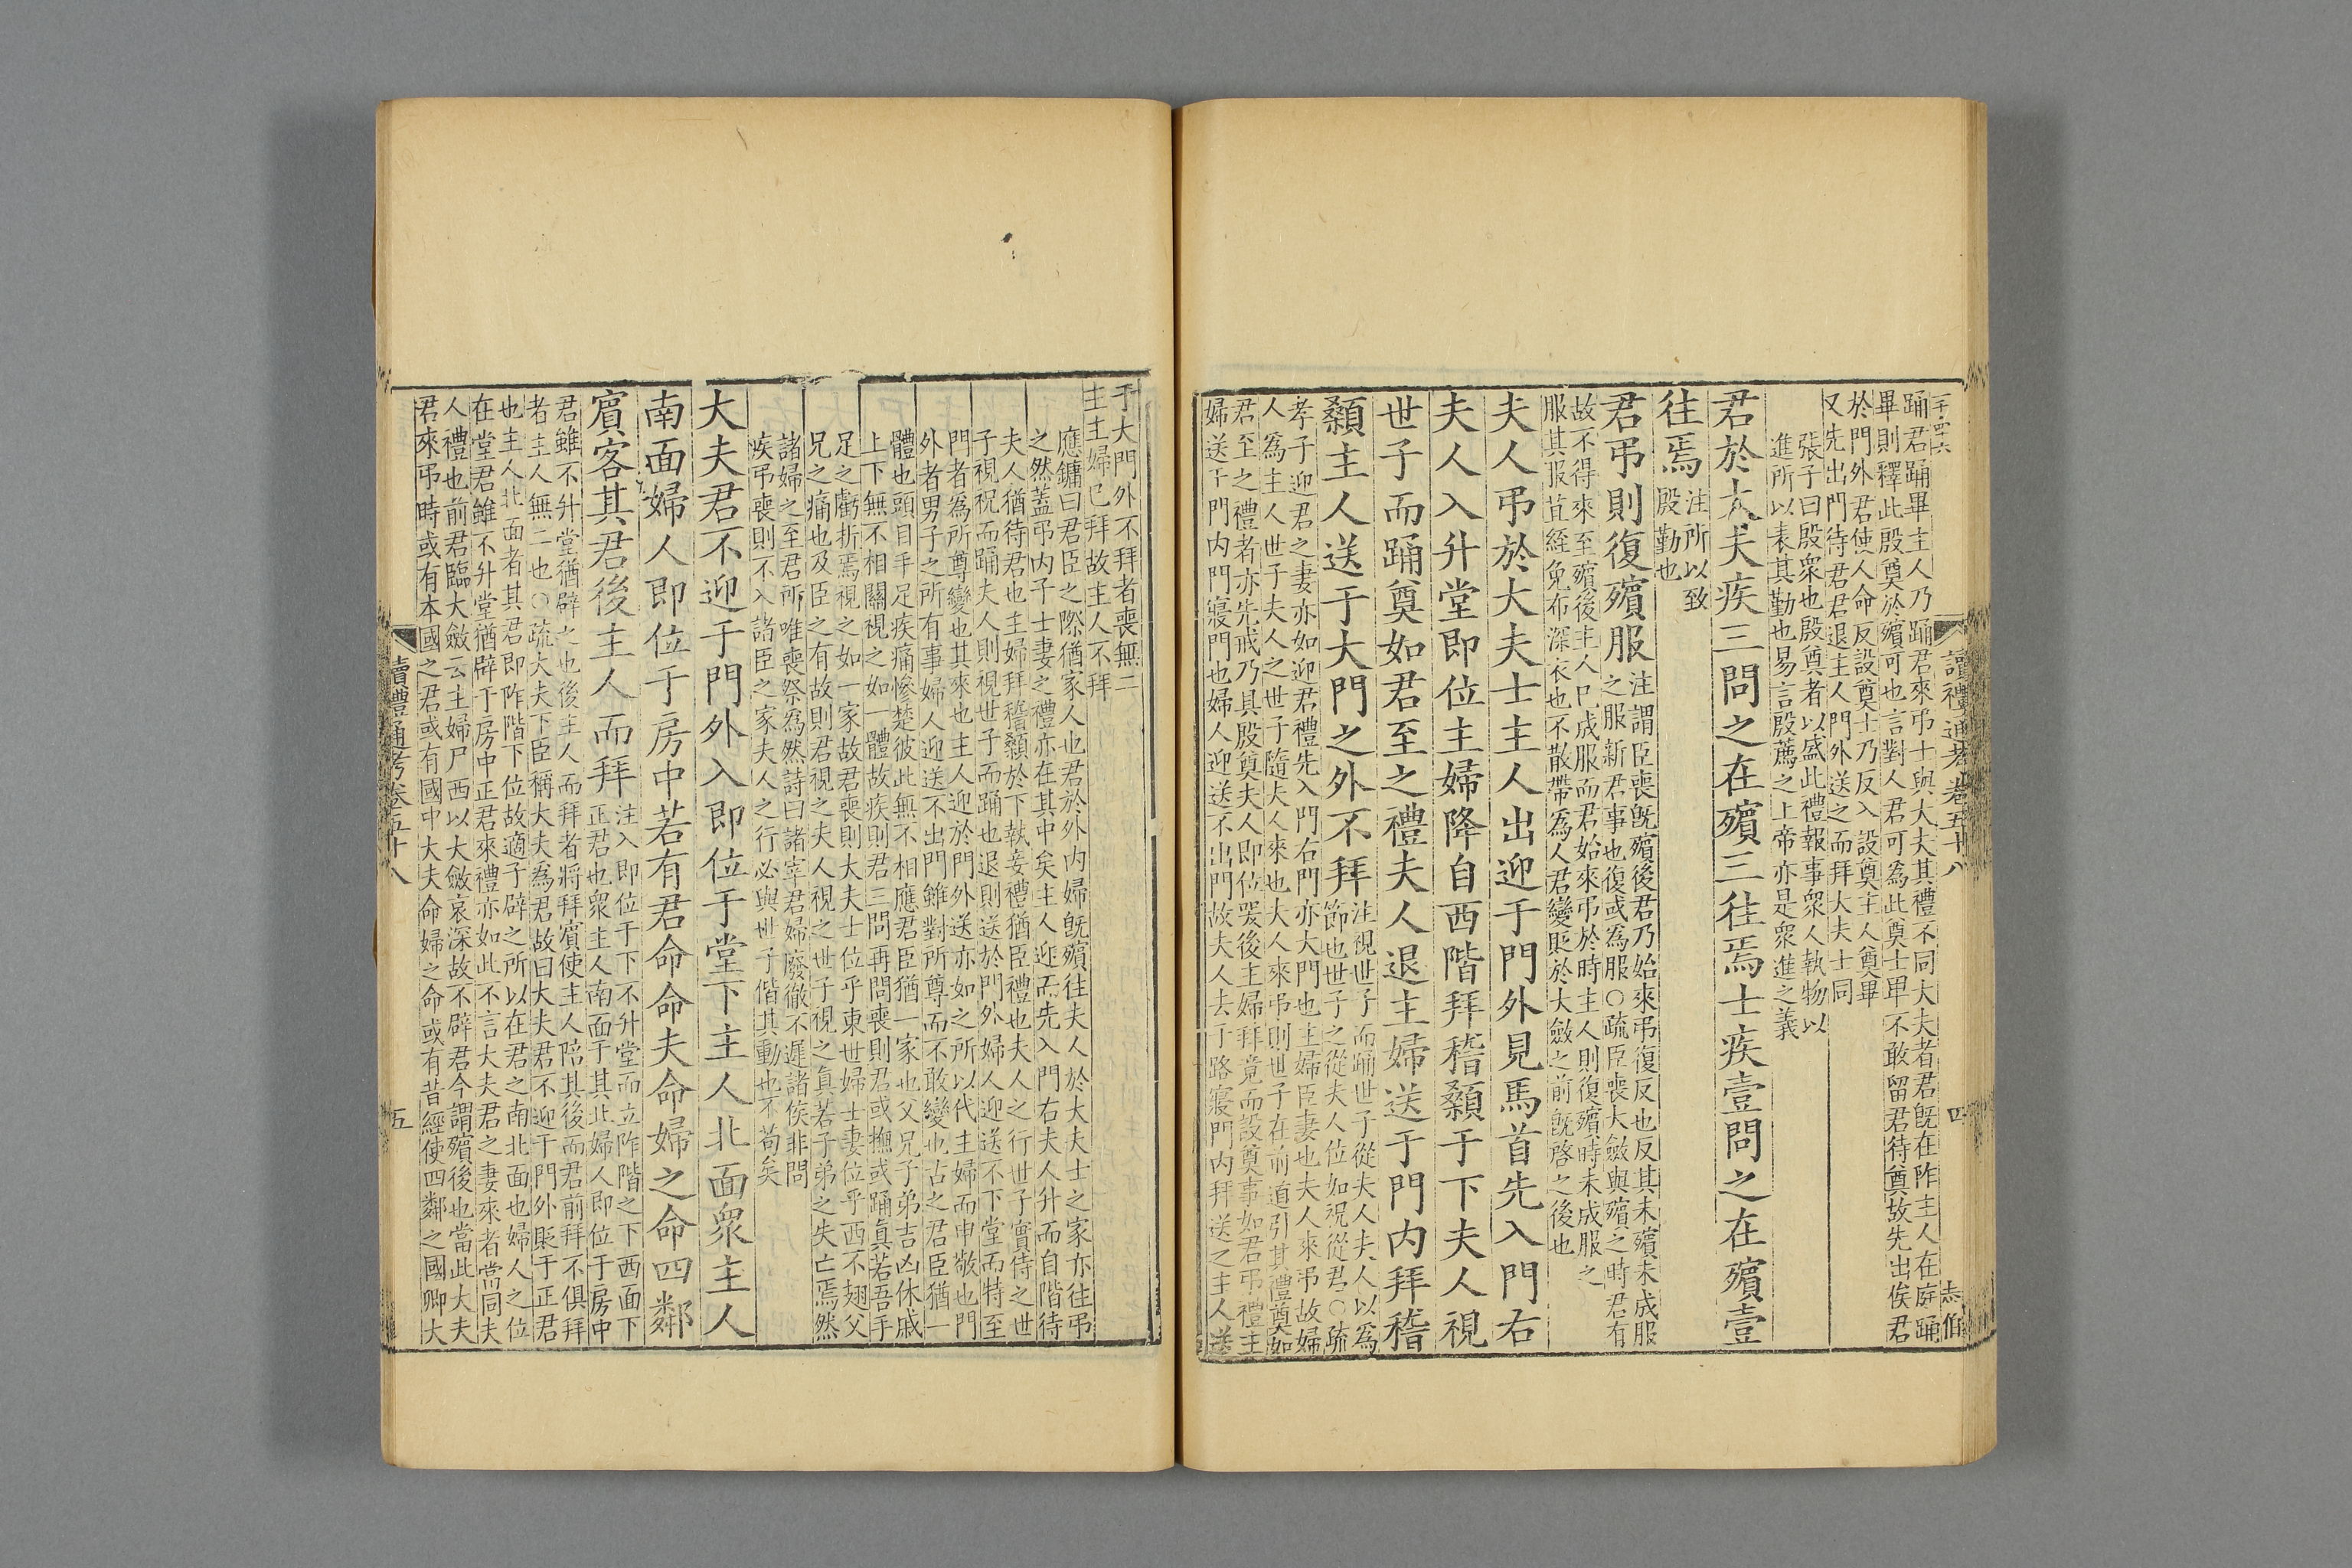 讀禮通考卷五十八
四
踊君踊畢主人乃踊君來弔士與大夫其禮不同大夫者君既在阼主人在庭踊
畢則釋此殷奠於殯可也言對人君可為此奠士卑不敢留君待奠故先出俟君
於門外君使人命反設奠士乃反入設奠主人奠畢
又先出門待君君退主人門外送之而拜大夫士同
張子曰殷衆也殷奠者以盛此禮報事衆人執物以
進所以表其勤也易言殷薦之上帝亦是衆進之義
君於大夫疾三問之在殯三往焉士疾壹問之在殯壹
往焉注所以致
殷勤也
君弔則復殯服注謂臣喪既殯後君乃始來弔復反也反其未殯未成服
之服新君事也復或為服○疏臣喪大斂與殯之時君有
故不得來至殯後主人已成服而君始來弔於時主人則復殯時未成服之
服其服苴絰免布深衣也不散帶為人君變貶於大斂之前既啓之後也
夫人弔於大夫士主人出迎于門外見馬首先入門右
夫人入升堂即位主婦降自西階拜稽顙于下夫人視
世子而踊奠如君至之禮夫人退主婦送于門內拜稽
顙主人送于大門之外不拜注視世子而踊世子從夫人夫人以為
節也世子之從夫人位如祝從君○疏
孝子迎君之妻亦如迎君禮先入門右門亦大門也主婦臣妻也夫人來弔故婦
人為主人世子夫人之世子隨夫人來也夫人來弔則世子在前道引其禮奠如
君至之禮者亦先戒乃具殷奠夫人即位哭後主婦拜竟而設奠事如君弔禮主
婦送于門內門寢門也婦人迎送不出門故夫人去于路寢門內拜送之主人送
于大門外不拜者喪無二
主主婦已拜故主人不拜
應鏞曰君臣之際猶家人也君於外內婦既殯往夫人於大夫士之家亦往弔
之然蓋弔內子士妻之禮亦在其中矣主人迎而先入門右夫人升而自階待
夫人猶待君也主婦拜稽顙於下執妾禮猶臣禮也夫人之行世子實侍之世
子視祝而踊夫人則視世子而踊也退則送於門外婦人迎送不下堂而特至
門者為所尊變也其來也主人迎於門外送亦如之所以代主婦而申敬也門
外者男子之所有事婦人迎送不出門雖對所尊而不敢變也古之君臣猶一
體也頭目手足疾痛慘楚彼此無不相應君臣猶一家也父兄子弟吉凶休戚
上下無不相關視之如一體故疾則君三問再問喪則君或撫或踊真若吾手
足之虧折焉視之如一家故君喪則大夫士位乎東世婦士妻位乎西不翅父
兄之痛也及臣之有故則君視之夫人視之世子視之真若子弟之失亡焉然
諸婦之至君所唯喪祭為然詩曰諸宰君婦廢徹不遲諸侯非問
疾弔喪則不入諸臣之家夫人之行必與世子偕其動也不苟矣
大夫君不迎于門外入即位于堂下主人北面衆主人
南面婦人即位于房中若有君命命夫命婦之命四鄰
賓客其君後主人而拜注入即位于下不升堂而立阼階之下西面下
正君也衆主人南面于其北婦人即位于房中
君雖不升堂猶辟之也後主人而拜者將拜賓使主人陪其後而君前拜不俱拜
者主人無二也○疏大夫下臣稱大夫為君故曰大夫君不迎于門外貶于正君
也主人北面者其君即阼階下位故適子辟之所以在君之南北面也婦人之位
在堂君雖不升堂猶辟于房中正君來禮亦如此不言大夫君之妻來者當同夫
人禮也前君臨大斂云主婦尸西以大斂哀深故不辟君今謂殯後也當此大夫
君來弔時或有本國之君或有國中大夫命婦之命或有昔經使四鄰之國卿大
讀禮通考卷五十八
五